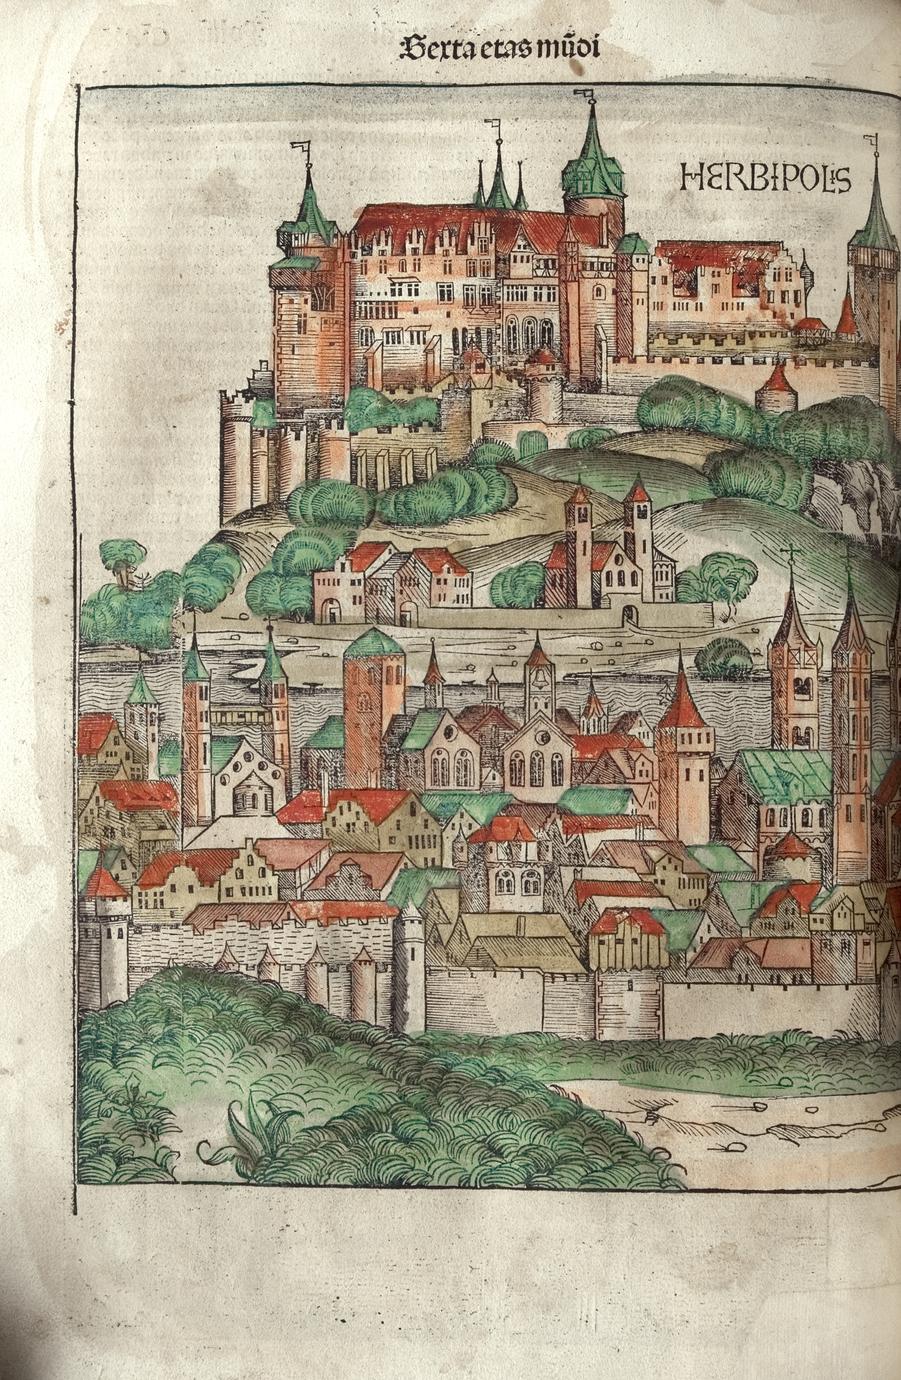 Sexta etas mũdi
HERBIPOLIS